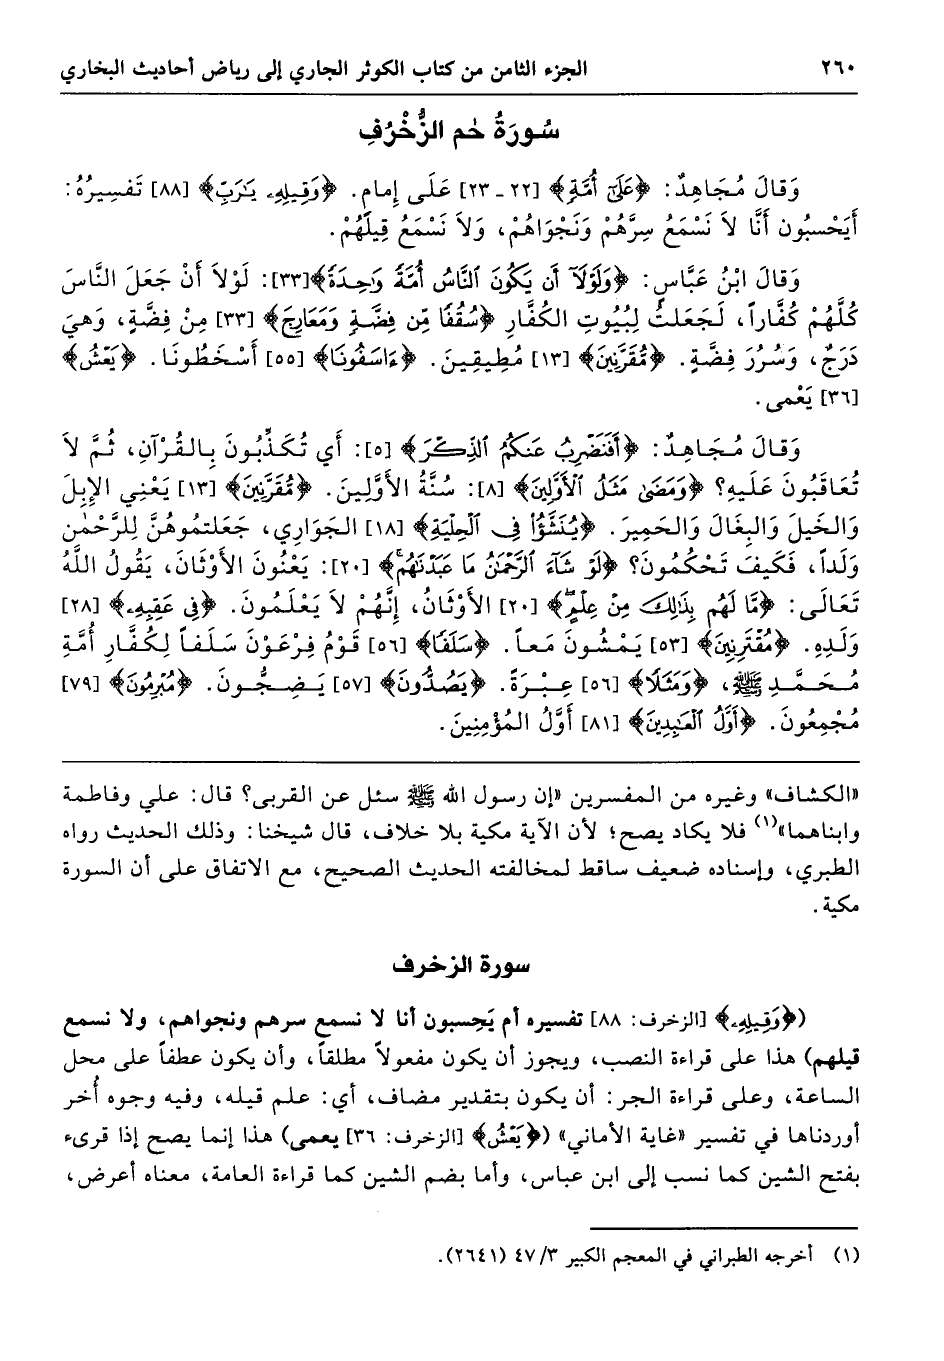 ٢٦٠ الجزء الثامن من كتاب الكوثر الجاري إلى رياض أحاديث البخاري
سُورَةُ حٰم الزُّخْرُفِ
وَقالَ مُجَاهِدٌ: ﴿عَلَىٰٓ أُمَّةٍ﴾ [٢٢ ـ ٢٣] عَلَى إِمام. ﴿وَقِيلِهِۦ يَـٰرَبِّ﴾ [٨٨] تَفْسِيرُهُ:
أَيَحْسِبُون أَنَّا لاَ نَسْمَعُ سِرَّهُمْ وَنَجْوَاهُمْ، وَلاَ نَسْمَعُ قِيلَهُمْ.
وَقالَ ابْنُ عَبَّاسٍ: ﴿وَلَوْلَآ أَن يَكُونَ ٱلنَّاسُ أُمَّةً وَٰحِدَةً﴾[٣٣]: لَوْلاَ أَنْ جَعَلَ النَّاسَ
كُلَّهُمْ كُفَّاراً، لَجَعَلتُ لِبُيُوتِ الكُفَّارِ ﴿سُقُفًا مِّن فِضَّةٍ وَمَعَارِجَ﴾ [٣٣] مِنْ فِضَّةٍ، وَهيَ
دَرَجٌ، وَسُرُرَ فِضَّةٍ. ﴿مُقْرِنِينَ﴾ [١٣] مُطِيقِينَ. ﴿ءَاسَفُونَا﴾ [٥٥] أَسْخَطُونَا. ﴿يَعْشُ﴾
[٣٦] يَعْمى.
وَقالَ مُجَاهِدٌ: ﴿أَفَنَضْرِبُ عَنكُمُ ٱلذِّكْرَ﴾ [٥]: أَي تُكَذِّبُونَ بِالقُرْآنِ، ثُمَّ لاَ
تُعَاقَبُونَ عَلَيهِ؟ ﴿وَمَضَىٰ مَثَلُ ٱلْأَوَّلِينَ﴾ [٨]: سُنَّةُ الأَوَّلِينَ. ﴿مُقْرِنِينَ﴾ [١٣] يَعْنِي الإِبِلَ
وَالخَيلَ وَالبِغَالَ وَالحَمِيرَ. ﴿يُنَشَّؤُاْ فِى ٱلْحِلْيَةِ﴾ [١٨] الجَوَارِي، جَعَلتُمُوهُنَّ لِلرَّحْمٰنِ
وَلَداً، فَكَيفَ تَحْكُمُونَ؟ ﴿لَوْ شَآءَ ٱلرَّحْمَـٰنُ مَا عَبَدْنَـٰهُمْ﴾ [٢٠]: يَعْنُونَ الأَوْثَانَ، يَقُولُ اللَّهُ
تَعَالَى: ﴿مَّا لَهُم بِذَٰلِكَ مِنْ عِلْمٍ﴾ [٢٠] الأَوْثَانُ، إِنَّهُمْ لاَ يَعْلَمُونَ. ﴿فِى عَقِبِهِۦ﴾ [٢٨]
وَلَدِهِ. ﴿مُقْتَرِنِينَ﴾ [٥٣] يَمْشُونَ مَعاً. ﴿سَلَفًا﴾ [٥٦] قَوْمُ فِرْعَوْنَ سَلَفاً لِكُفَّارِ أُمَّةِ
مُحَمَّدٍ ﷺ، ﴿وَمَثَلًا﴾ [٥٦] عِبْرَةً. ﴿يَصُدُّونَ﴾ [٥٧] يَضِجُّونَ. ﴿مُبْرِمُونَ﴾ [٧٩]
مُجْمِعُونَ. ﴿أَوَّلُ ٱلْعَـٰبِدِينَ﴾ [٨١] أَوَّلُ المُؤْمِنِينَ.
«الكشاف» وغيره من المفسرين «إن رسول الله ﷺ سئل عن القربى؟ قال: علي وفاطمة
وابناهما»(١) فلا يكاد يصح؛ لأن الآية مكية بلا خلاف، قال شيخنا: وذلك الحديث رواه
الطبري، وإسناده ضعيف ساقط لمخالفته الحديث الصحيح، مع الاتفاق على أن السورة
مكية.
سورة الزخرف
(﴿وَقِيلِهِۦ﴾ [الزخرف: ٨٨] تفسيره أم يَحِسبون أنا لا نسمع سرهم ونجواهم، ولا نسمع
قيلهم) هذا على قراءة النصب، ويجوز أن يكون مفعولاً مطلقاً، وأن يكون عطفاً على محل
الساعة، وعلى قراءة الجر: أن يكون بتقدير مضاف، أي: علم قيله، وفيه وجوه أُخر
أوردناها في تفسير «غاية الأماني» (﴿يَعْشُ﴾ [الزخرف: ٣٦] يعمى) هذا إنما يصح إذا قرىء
بفتح الشين كما نسب إلى ابن عباس، وأما بضم الشين كما قراءة العامة، معناه أعرض،
(١) أخرجه الطبراني في المعجم الكبير ٤٧/٣ (٢٦٤١).